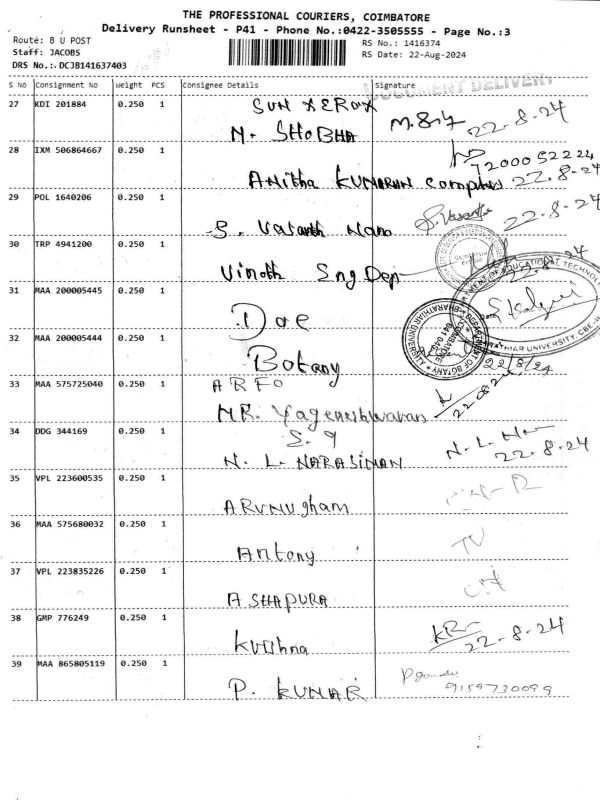 THE PROFESSIONAL COURIERS, COIMBATORE
Delivery Runsheet - P41 - Phone No.:0422-3505555 - Page No.:3
Route: B U POST
Staff: JACOBS
DRS No.:.DCJB141637403
RS No.: 1416374
RS Date: 22-Aug-2024
S No Consignment No Weight PCS Consignee Details Signature
DOCUMENT DELIVERY
27 KDI 201884 0.250 1 SUN XEROX
M. SHOBHA
22-8-24
28 IXM 506864667 0.250 1
7200052224
Anitha KUMARAN complex 22-8-24
29 POL 1640206 0.250 1
S. Vasanth Nano
S. Vasanth 22-8-24
30 TRP 4941200 0.250 1
Vinoth Sng Dep
22-8-24
31 MAA 200005445 0.250 1
Doe
32 MAA 200005444 0.250 1
Botany
22/8/24
33 MAA 575725040 0.250 1 ARFO
MR. Yageneshwaran
22.08.24
34 DDG 344169 0.250 1 S. 9
N. L. NARASIMAN
N. L.
22-8-24
35 VPL 223600535 0.250 1
ARUNUgham
36 MAA 575680032 0.250 1
Antony
37 VPL 223835226 0.250 1
ASHAPURA
38 GMP 776249 0.250 1
Krishna
KR
22-8-24
39 MAA 865805119 0.250 1
P. KUMAR
9159730099